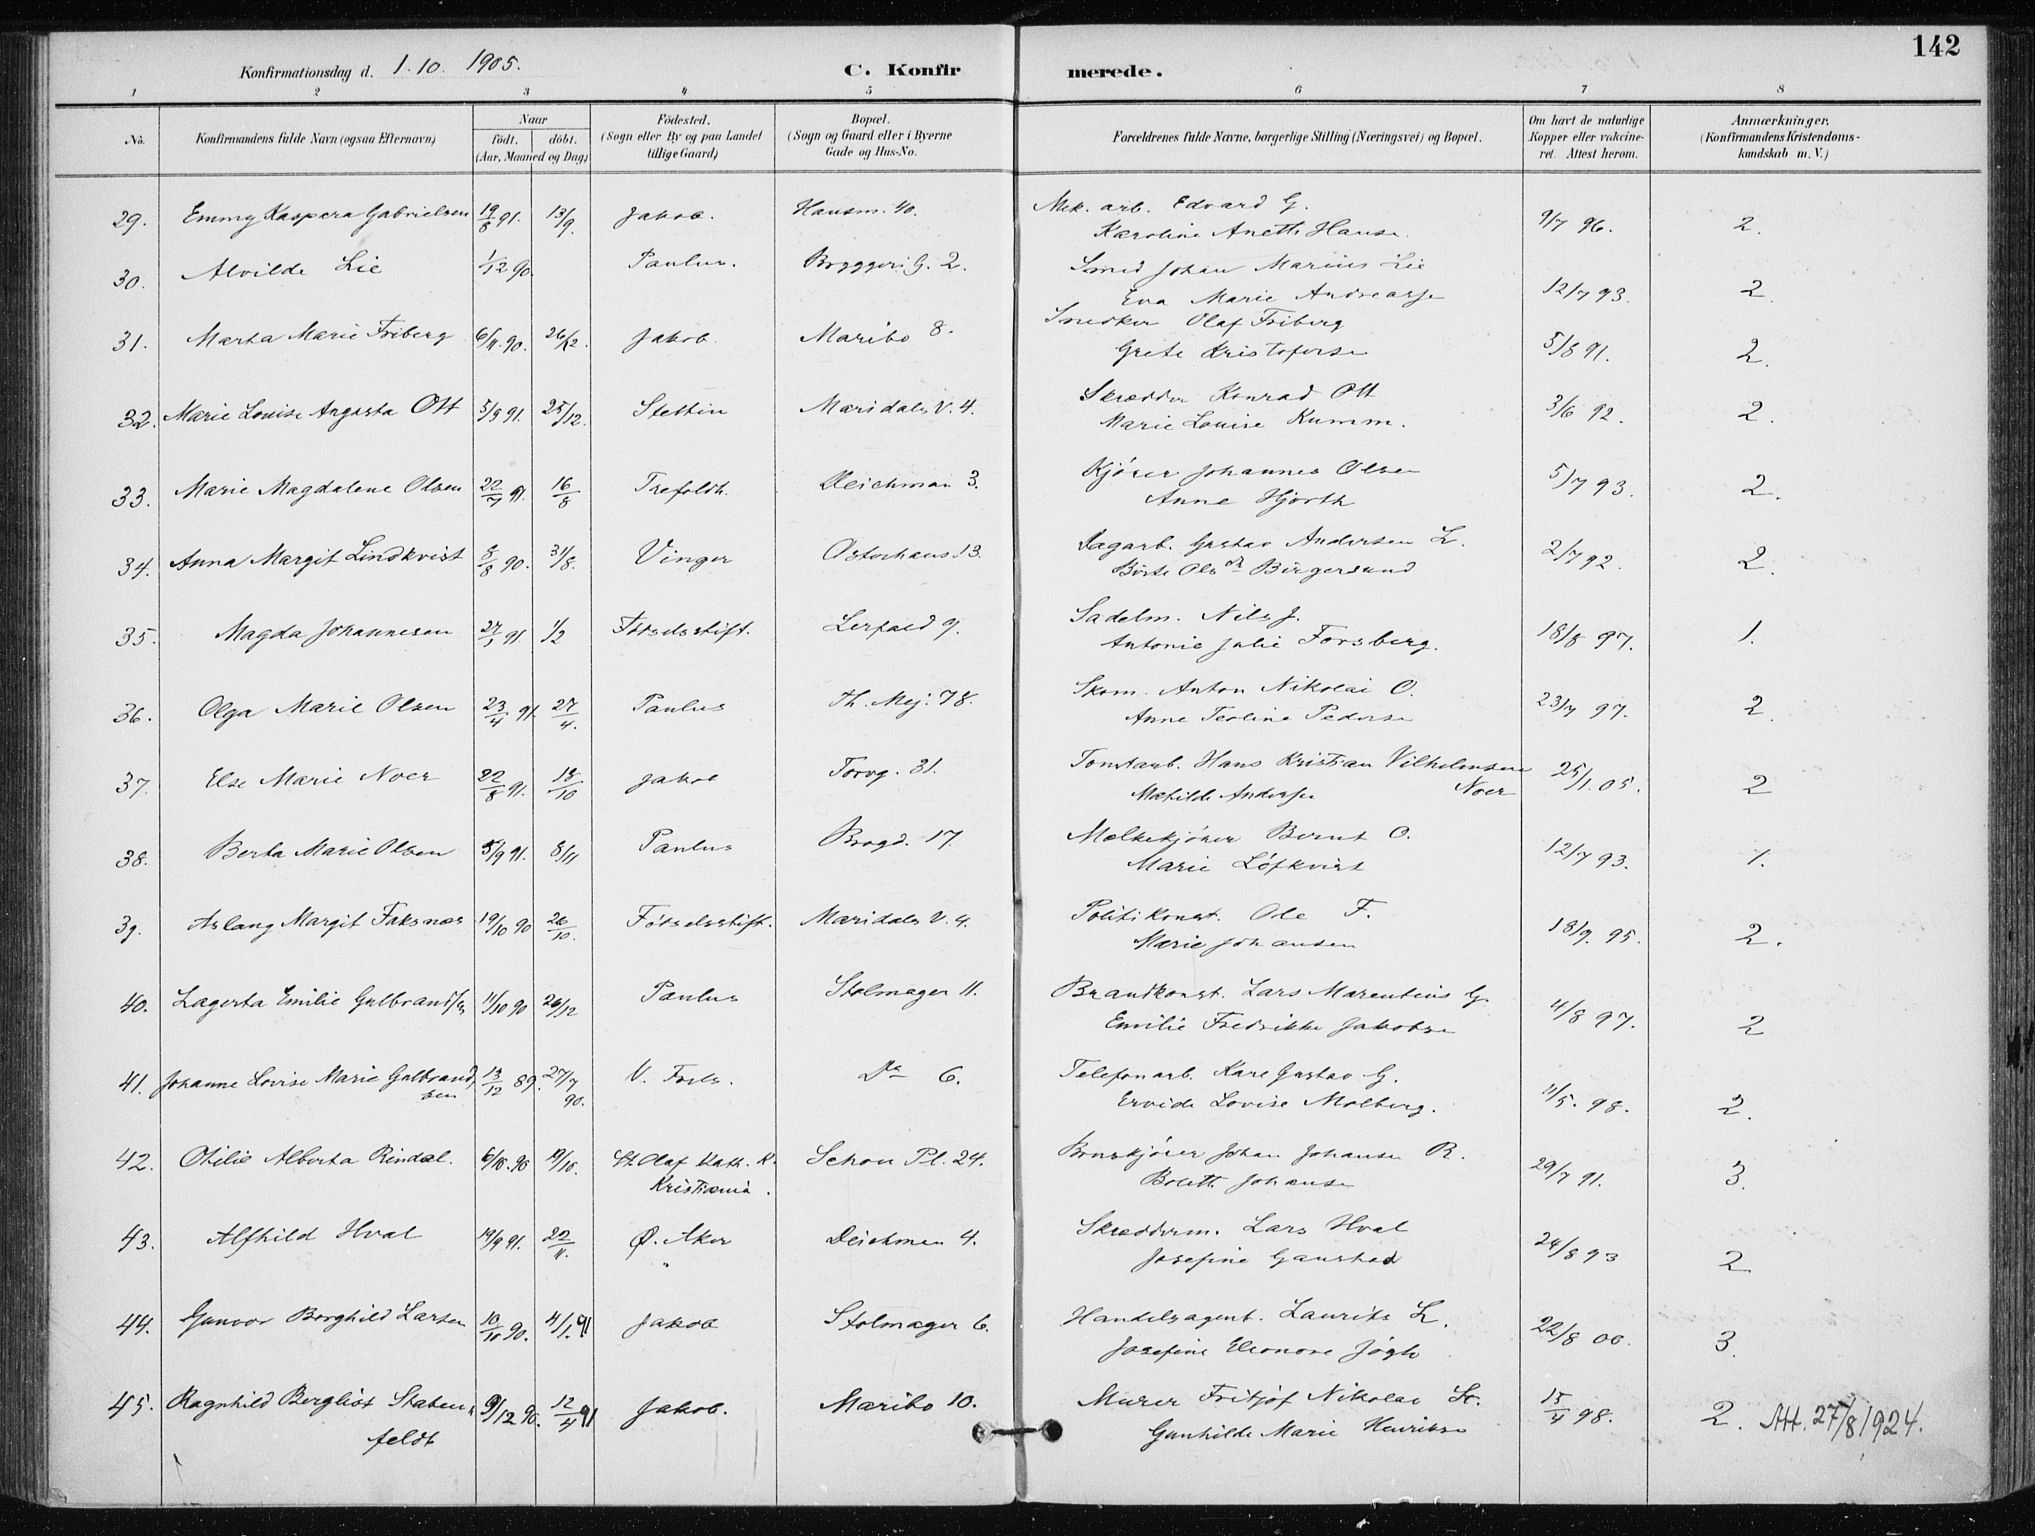 142
Konfirmationsdag d. 1.10. 1905.
C. Konfirmerede.
1 2 3 4 5 6 7 8
No.
Konfirmandens fulde Navn (ogsaa Efternavn)
Naar
født. døbt.
(Aar, Maaned og Dag)
Fødested.
(Sogn eller By og paa Landet
tillige Gaard)
Bopæl.
(Sogn og Gaard eller i Byerne
Gade og Hus-No.
Forældrenes fulde Navne, borgerlige Stilling (Næringsvei) og Bopæl.
Om havt de naturlige
Kopper eller vakcine-
ret. Attest herom.
Anmærkninger.
(Konfirmandens Kristendoms-
kundskab m. V.)
29. Emmy Kaspera Gabrielsen 19/8 91. 13/9. Jakob. Hausm. 40. Mek. arb. Edvard G. 9/7 96. 2.
Karoline Anette Hanse.
30. Alvilde Lie 1/12 90. Paulus. Bryggeri G. 2. Smed Johan Marius Lie 12/7 93. 2.
Eva Marie Andreasse
31. Marta Marie Friberg 6/11. 90. 26/12. Jakob. Maribo 8. Snedker Olaf Friberg 5/8 91. 2.
Grete Kristoferse
32. Marie Louise Augusta Ott 5/9 91. 25/12. Stettin Maridals V. 4. Skrædder Konrad Ott 3/6 92. 2.
Marie Louise Kumm.
33. Marie Magdalene Olsen 22/7 91. 16/8 Trefoldh. Deichman 3. Kjører Johannes Olsen 5/7 93. 2.
Anne Hjorth
34. Anna Margit Lindkvist 8/8 90. 31/8. Vinger Osterhaus 13. Lagarb. Gustav Andersen L. 2/7 92. 2.
Børte Olsdr Børgersund
35. Magda Johannesen 27/1 91 1/2 Fødselsstift. Lerfald 9. Sadelm. Nils J. 18/8 97. 1.
Antonie Julie Forsberg.
36. Olga Marie Olsen 23/4 91. 27/4. Paulus Th. Mej. 78. Skom. Anton Nikolai O. 23/7 97. 2.
Anne Teoline Pederse
37. Else Marie Noer 22/8 91. 18/10 Jakob Torvg. 31. Tomtarb. Hans Kristian Vilhelmsen 25/1. 05. 2
Mathilde Anderse Noer
38. Berta Marie Olsen 5/9 91. 8/11 Paulus Brogd. 17. Melkekjører Bernt O. 12/7 93. 1.
Marie Löfkvist
39. Aslaug Margit Faksnæs 19/10 90 26/10. Fødselsstift. Maridals V. 4. Politikonst. Ole F. 18/9. 95. 2.
Marie Johansen
40. Lagerta Emilie Gulbrandsen 11/10 90 26/12 Paulus Stolmager 11. Brandkonst. Lars Marentius G. 4/8 97. 2
Emilie Fredrikke Jakobse
41. Johanne Lovise Marie Gulbrand, 13/12 89. 27/7 V. Fors. Do 6. Telefonarb. Karl Gustav G. 11/5. 98. 2.
sen 90. Ervide Lovise Molberg.
42. Otilie Alberta Rindal. 6/10. 90 19/10. St Olaf Kath. K. Schou Pl. 24. Johan Johansen R. 29/7 91. 3.
Kristiania. Bolette Johanse
43. Alfhild Hval 19/9 91. 22/11. Ø. Aker Deichman 4. Skræderm. Lars Hval 24/8 93 2
" Josefine Ganstad
44. Gunvor Borghild Larsen 10/10 90. 4/1. 91 Jakob Stolmager 6. Handelsagent. Laurits L. 22/8 00. 3.
Josefine Eleonore Jøgh
45. Ragnhild Bergliot Staben, 9/12 90. 12/4 91 Jakob. Maribo 10. Murer Fritjof Nikolai St. 15/4 98. 2. Att. 27/8 1924.
feldt Gunhilde Marie Henrikse